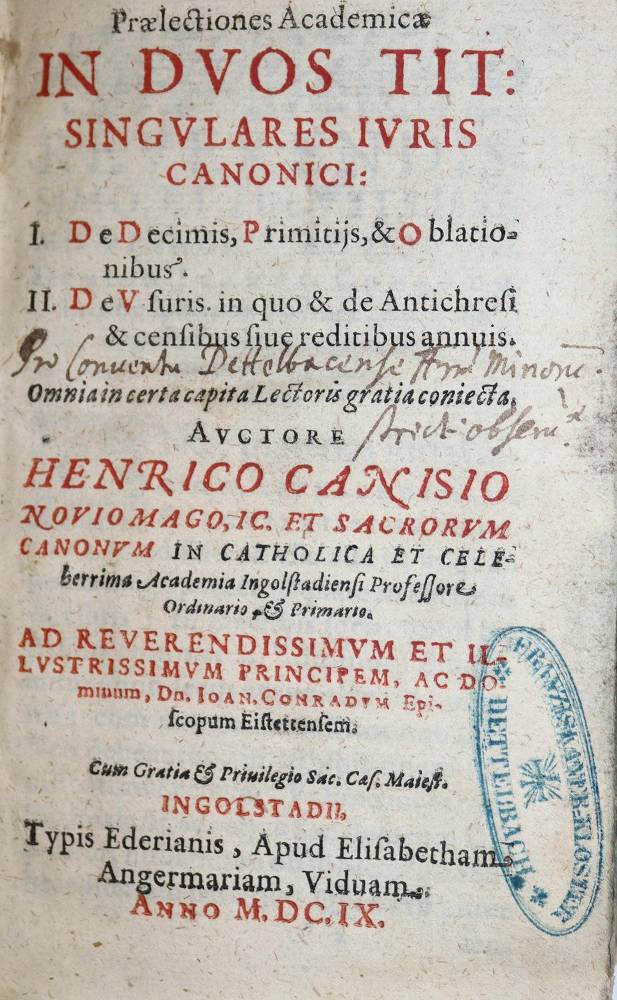 Prælectiones Academicæ
IN DVOS TIT:
SINGVLARES IVRIS
CANONICI:
I. De Decimis, Primitijs, & Oblatio-
nibus.
II. De Vsuris. in quo & de Antichresi
& censibus siue reditibus annuis.
Pro Conventu Dettelbacense ffrm Minorum
Omnia in certa capita Lectoris gratia coniecta.
AVCTORE
strict. observ.
HENRICO CANISIO
NOVIOMAGO, IC. ET SACRORVM
CANONVM IN CATHOLICA ET CELE-
berrima Academia Ingolstadiensi Professore
Ordinario, & Primario.
AD REVERENDISSIMVM ET IL-
LVSTRISSIMVM PRINCIPEM, AC DO-
minum, Dn. IOAN. CONRADVM Epi-
scopum Eistettensem.
Cum Gratia & Priuilegio Sac. Cæs. Maiest.
INGOLSTADII,
Typis Ederianis, Apud Elisabetham
Angermariam, Viduam.
ANNO M. DC. IX.
FRANZISKANER-KLOSTER
DETTELBACH